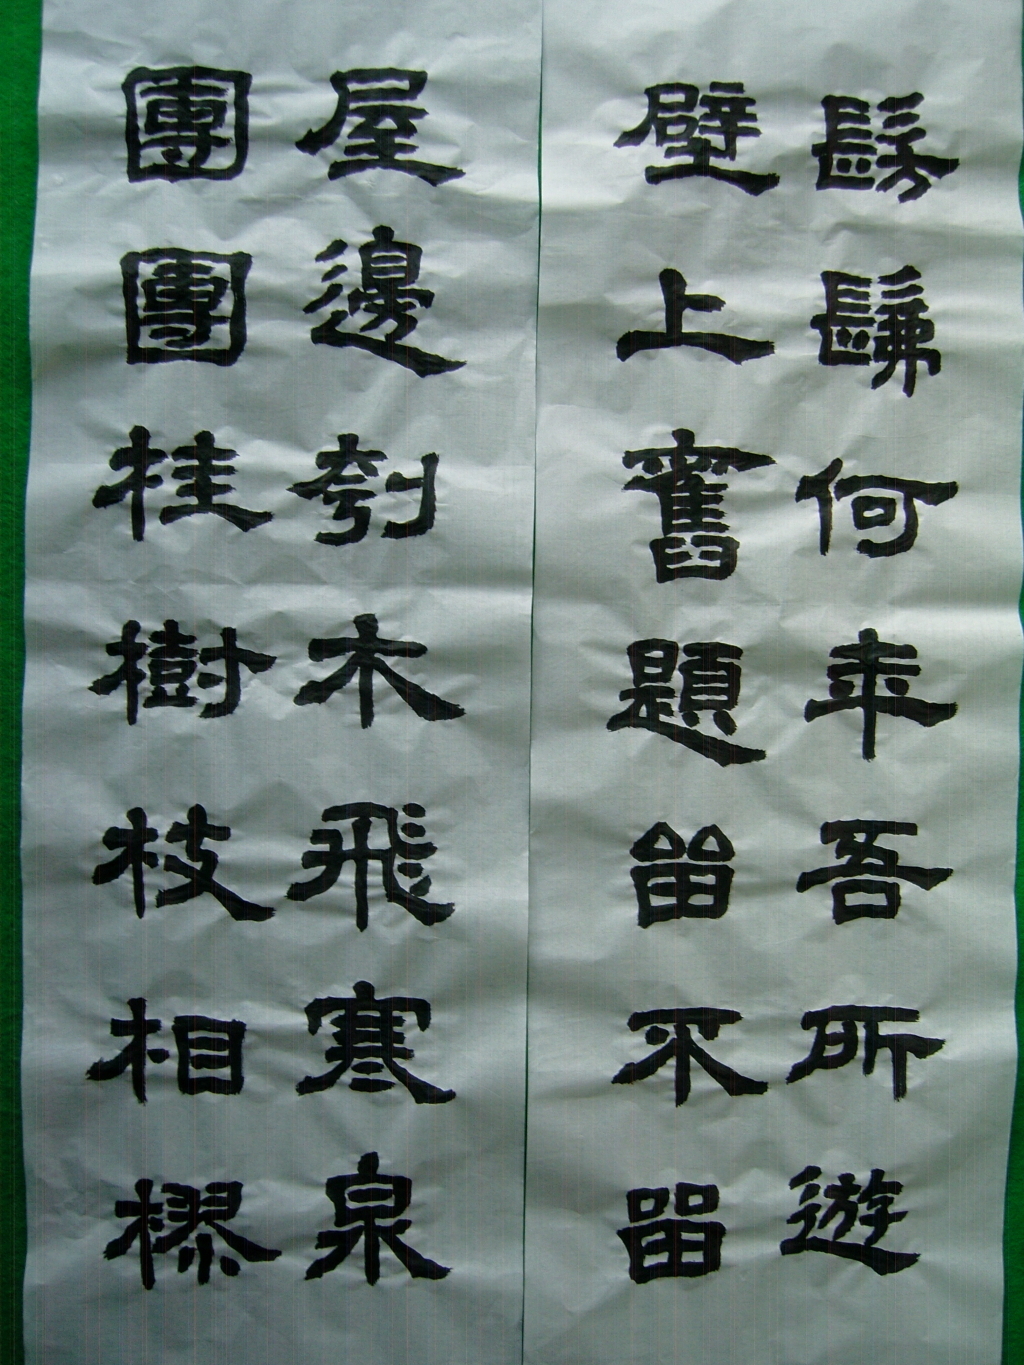 髣髴何年吾所遊
壁上舊題留不留
屋邊刳木飛寒泉
團團桂樹枝相樛